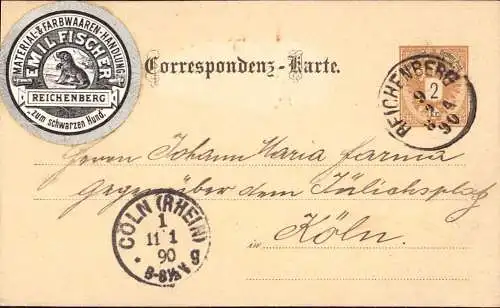 MATERIAL- & FARBWAAREN-HANDLUNG
EMIL FISCHER
REICHENBERG
"zum schwarzen Hund."
Correspondenz-Karte.
REICHENBERG
2
90
Herrn Johann Maria farina
Gegenüber dem Jülichsplatz
in Köln.
CÖLN (RHEIN)
1
11 1
90
* 8-8½V g